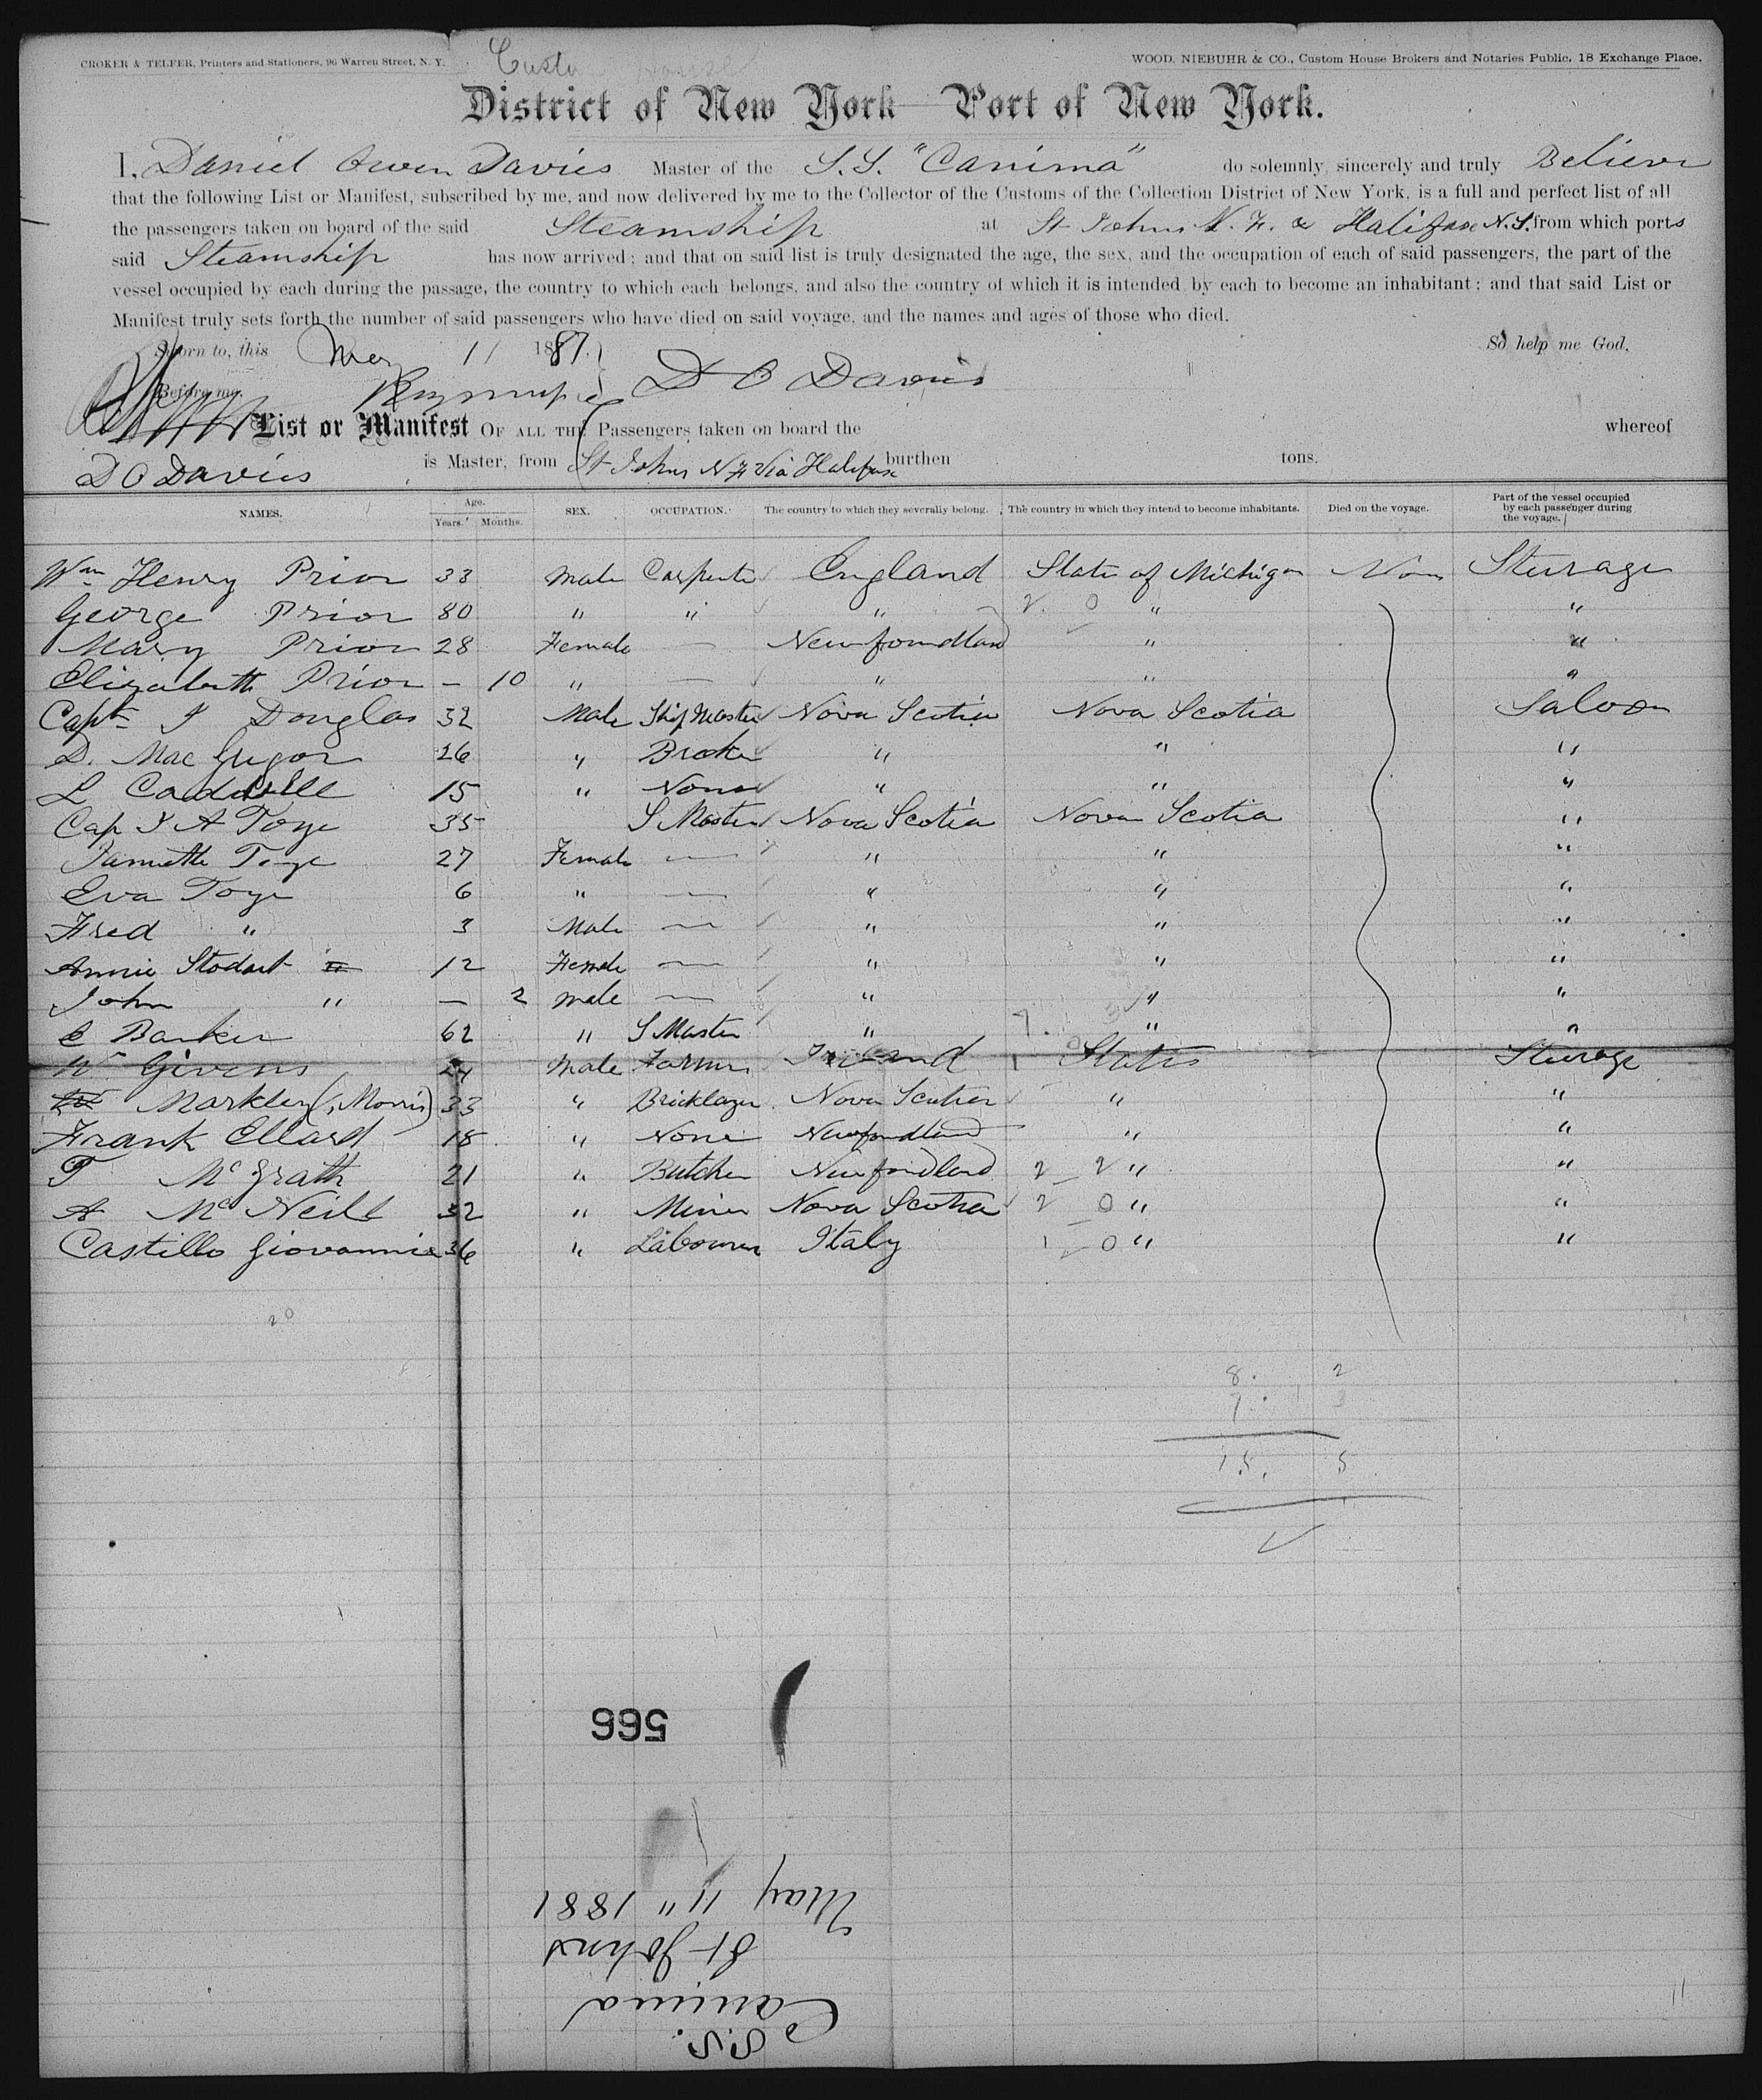 CROKER & TELFER, Printers and Stationers, 96 Warren Street, N. Y.
WOOD, NIEBUHR & CO., Custom House Brokers and Notaries Public, 18 Exchange Place.
Custom House
District of New York Port of New York.
I, Daniel Owen Davies Master of the S.S. "Canima" do solemnly, sincerely and truly Believe
that the following List or Manifest, subscribed by me, and now delivered by me to the Collector of the Customs of the Collection District of New York, is a full and perfect list of all
the passengers taken on board of the said Steamship at St Johns N. F. & Halifax N.S. from which ports
said Steamship has now arrived; and that on said list is truly designated the age, the sex, and the occupation of each of said passengers, the part of the
vessel occupied by each during the passage, the country to which each belongs, and also the country of which it is intended by each to become an inhabitant; and that said List or
Manifest truly sets forth the number of said passengers who have died on said voyage, and the names and ages of those who died.
Sworn to, this May 11 1881. So help me God.
Before me, D O Davies
List or Manifest OF ALL THE Passengers taken on board the whereof
D O Davies is Master, from St Johns N F via Halifax burthen tons.
NAMES. Age. Years. Months. SEX. OCCUPATION. The country to which they severally belong. The country in which they intend to become inhabitants. Died on the voyage. Part of the vessel occupied by each passenger during the voyage.
Wm Henry Prior 33 Male Carpenter England State of Michigan Non Steerage
George Prior 80 " " " 2. 0 " "
Mary Prior 28 Female — Newfoundland " "
Elizabeth Prior — 10 " — " " "
Captn J Douglas 32 Male Ship Master Nova Scotia Nova Scotia Saloon
D. Mac Gregor 26 " Broker " " "
L Caldwell 15 " None " " "
Cap J A Toye 35 S Master Nova Scotia Nova Scotia "
Toye 27 Female — " " "
Eva Toye 6 " — " " "
Fred " 3 Male — " " "
Annie Stodart 12 Female — " " "
John " — 2 male — " " "
C Barker 62 " S Master " 7. " "
W Givens 24 Male Farmer Ireland 1 States Steerage
Markley (Morris) 33 " Bricklayer Nova Scotia " "
Frank Ellard 18 " None Newfoundland " "
T McGrath 21 " Butcher Newfoundland 2 2 " "
A McNeill 32 " Miner Nova Scotia 2 0 " "
Castillo Giovannie 36 " Labourer Italy 1 0 " "
20
8. 2
7. 3
15. 5
566
S.S.
Canima
St Johns
May 11" 1881
11